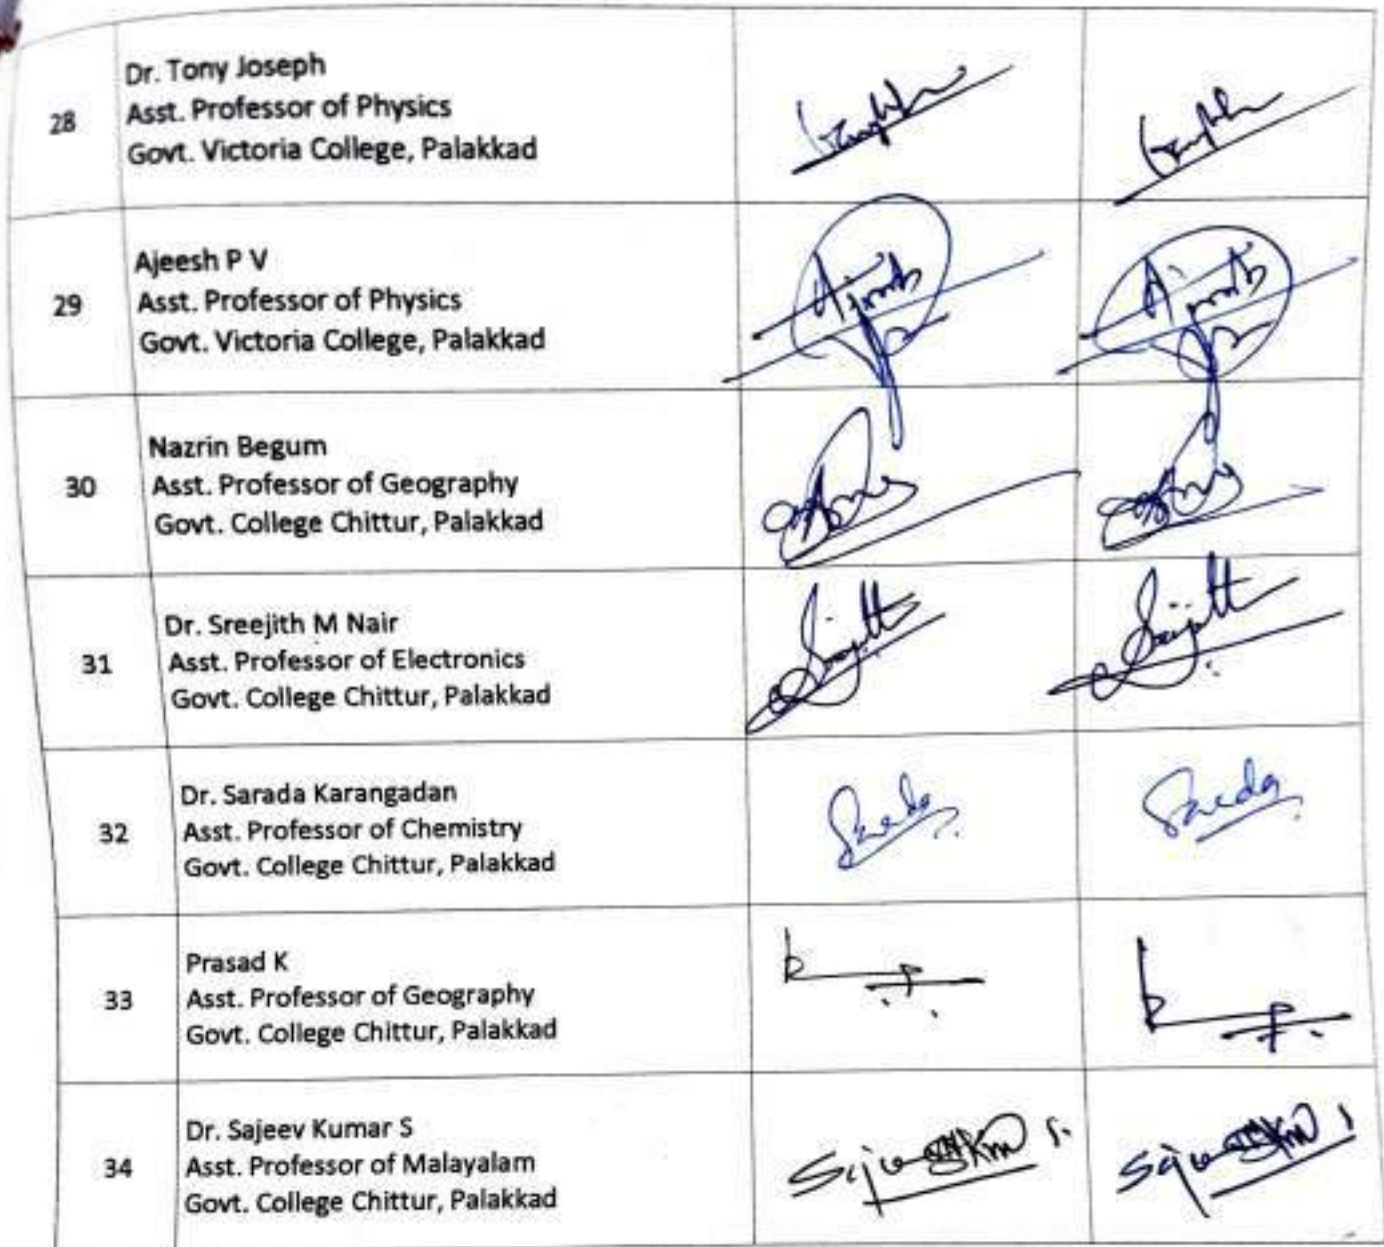 28
Dr. Tony Joseph
Asst. Professor of Physics
Govt. Victoria College, Palakkad
29
Ajeesh P V
Asst. Professor of Physics
Govt. Victoria College, Palakkad
30
Nazrin Begum
Asst. Professor of Geography
Govt. College Chittur, Palakkad
31
Dr. Sreejith M Nair
Asst. Professor of Electronics
Govt. College Chittur, Palakkad
32
Dr. Sarada Karangadan
Asst. Professor of Chemistry
Govt. College Chittur, Palakkad
33
Prasad K
Asst. Professor of Geography
Govt. College Chittur, Palakkad
34
Dr. Sajeev Kumar S
Asst. Professor of Malayalam
Govt. College Chittur, Palakkad